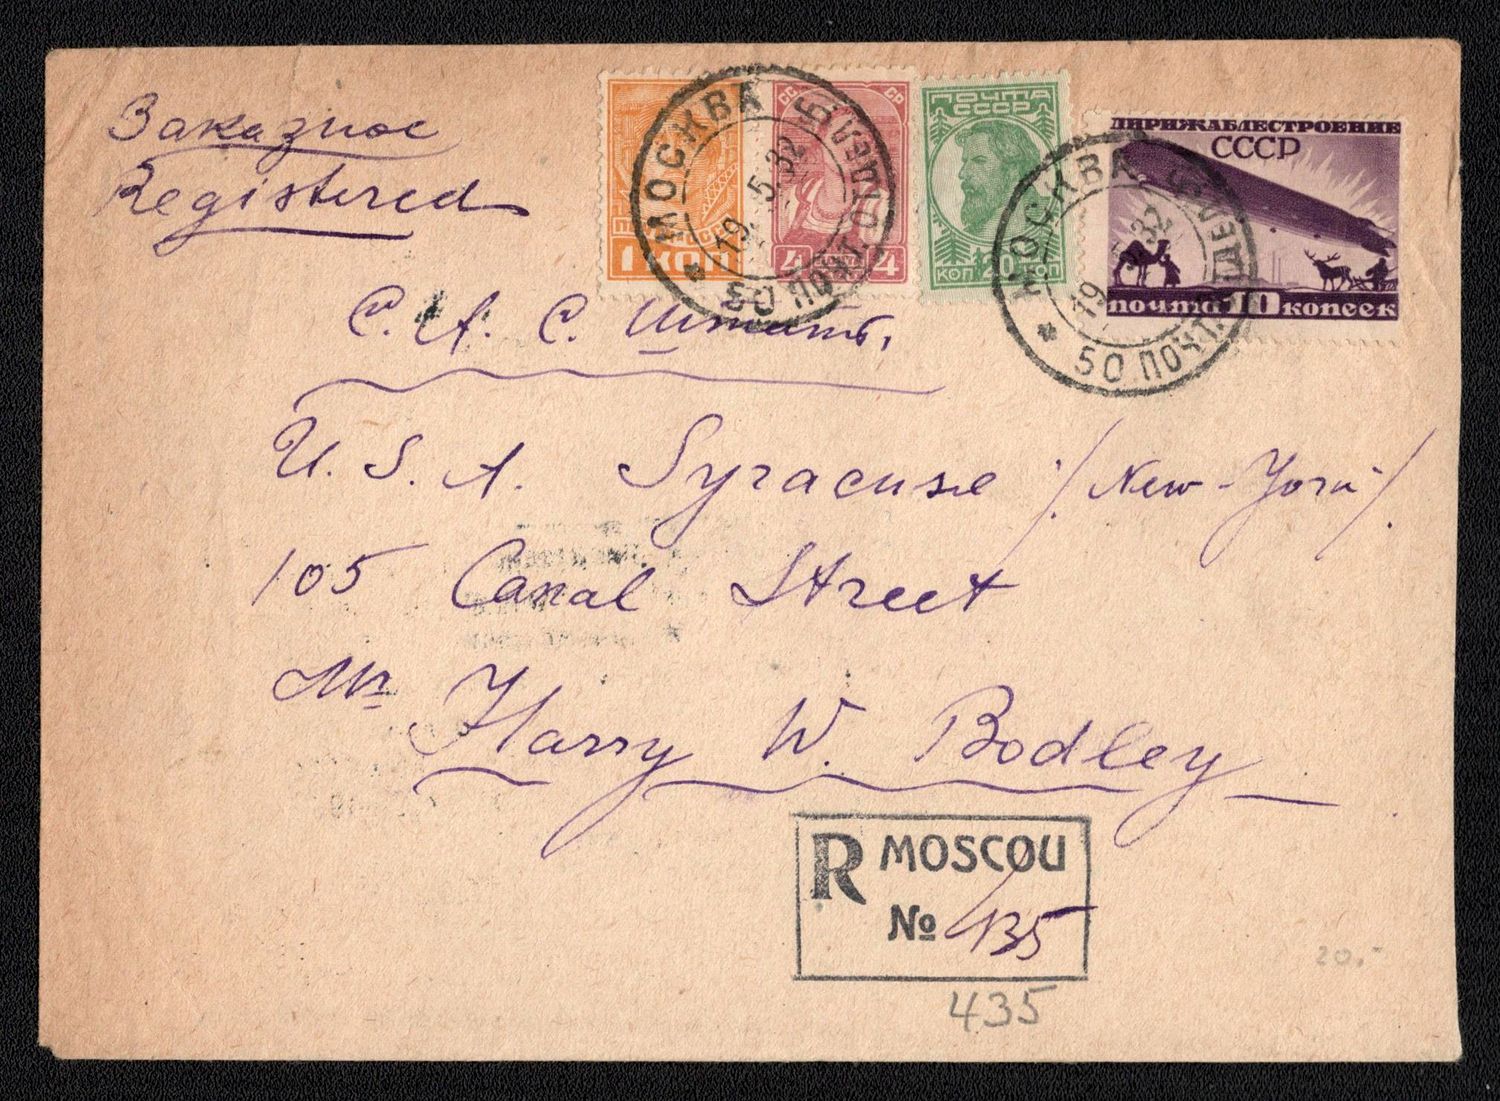 Заказное
Registered
1 КОП
СС СР
4 4
ПОЧТА
СССР
КОП 20 КОП
ДИРИЖАБЛЕСТРОЕНИЕ
СССР
почта 10 копеек
МОСКВА
19.5.32
50 ПОЧТ. ОТДЕЛ
МОСКВА
19 5.32
50 ПОЧТ. ОТДЕЛ
С. А. С. Штаты.
U. S. A. Syracuse /New-York/.
105 Canal Street
Mr Harry W. Bodley
R MOSCOU
№ 435
435
20.-